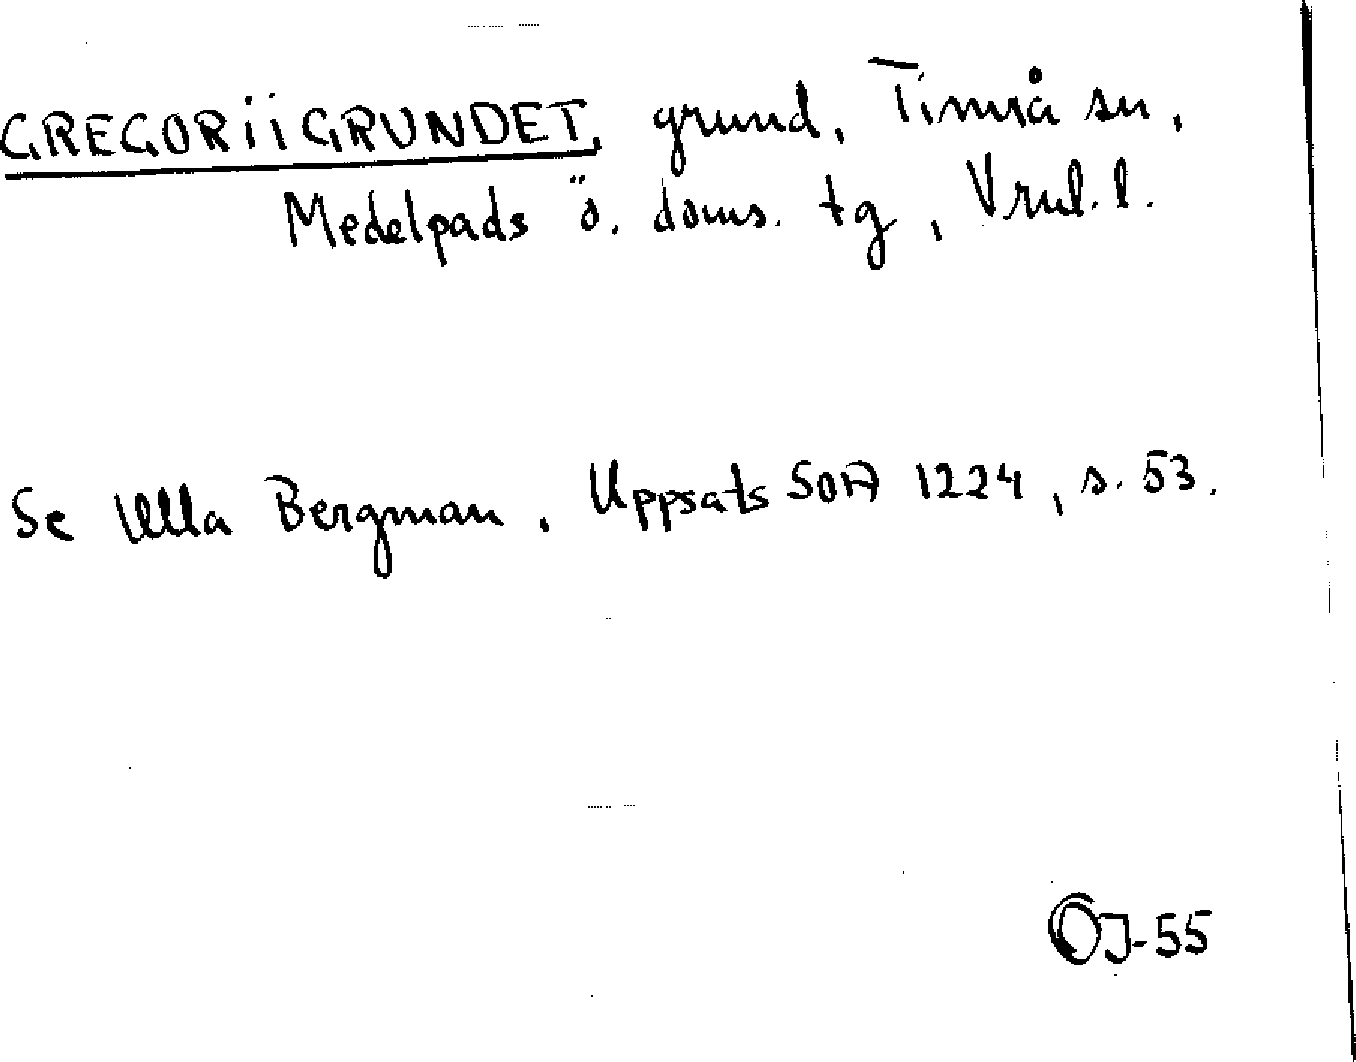 GREGORiiGRUNDET, grund, Timrå sn,
Medelpads ö. doms. tg, Vrnl. l.
Se Ulla Bergman, Uppsats SOA 1224, s. 53.
OJ-55